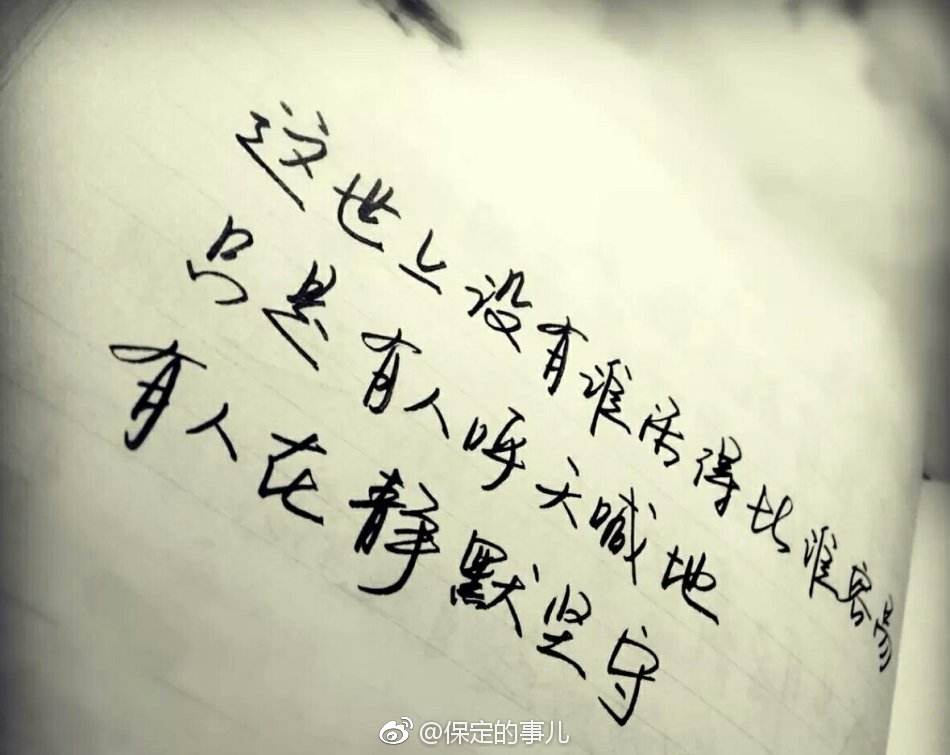 这世上没有谁活得比谁容易
只是有人呼天喊地
有人在静默坚守
@保定的事儿